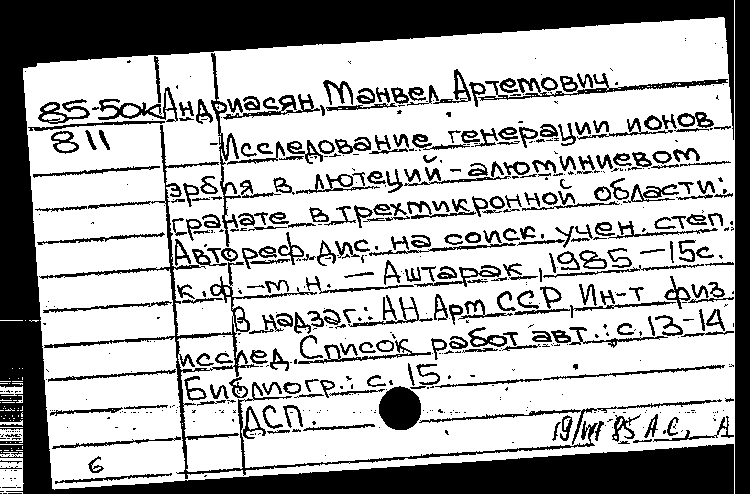 85-50к Андриасян, Манвел Артемович.
811 Исследование генерации ионов
эрбия в лютеций-алюминиевом
гранате в трехмикронной области:
Автореф. дис. на соиск. учен. степ.
к.ф.-м.н. — Аштарак, 1985. — 15с.
В надзаг.: АН Арм ССР, Ин-т физ.
исслед. Список работ авт.: с. 13-14
Библиогр.: с. 15.
ДСП.
19/VIII 85 А.С. А
6